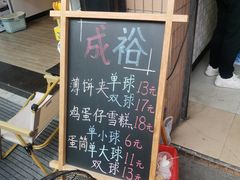 成裕
薄饼夹单球13元
双球17元
鸡蛋仔雪糕18元
蛋筒单小球6元
单大球11元
双球13元